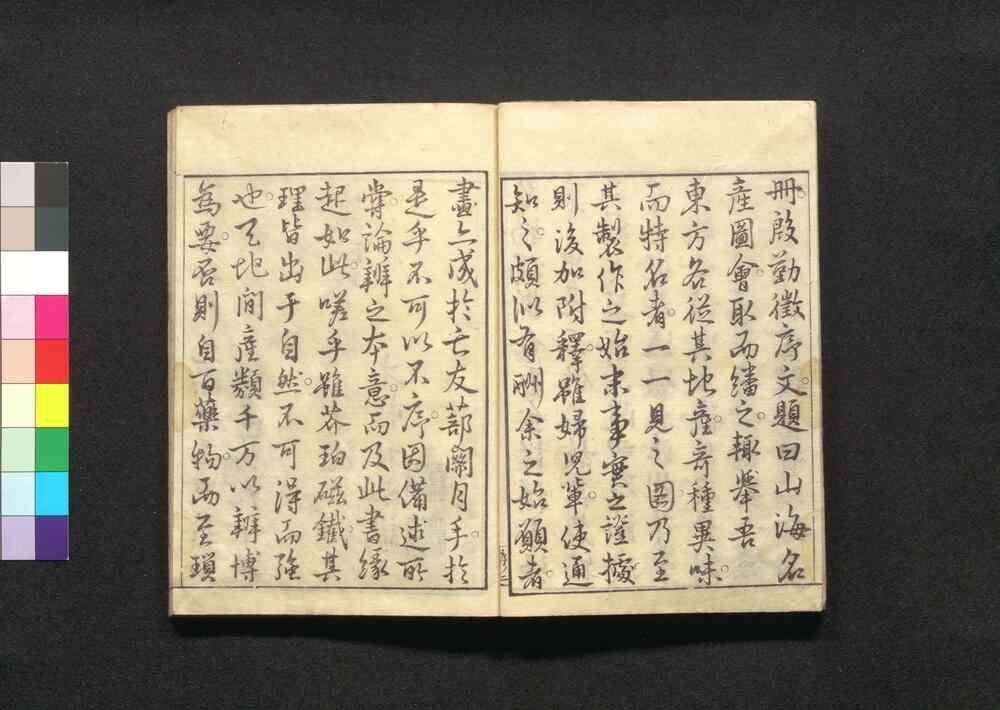 冊殷勤徵序文題曰山海名
産圖會取而繙之輙擧吾
東方各從其地産奇種異味
而特名者一一見之圖乃至
其製作之始末事實之證據
則後加附釋雖婦児輩使通
知之頗似有酬余之始願者
畫亦成於亡友蔀關月手於
是乎不可以不序因備述所
嘗論辨之本意而及此書縁
起如此嗟乎雖芥珀磁鐵其
理皆出于自然不可得而強
也天地間産類千万以辨博
為要否則自百藥物而至瑣